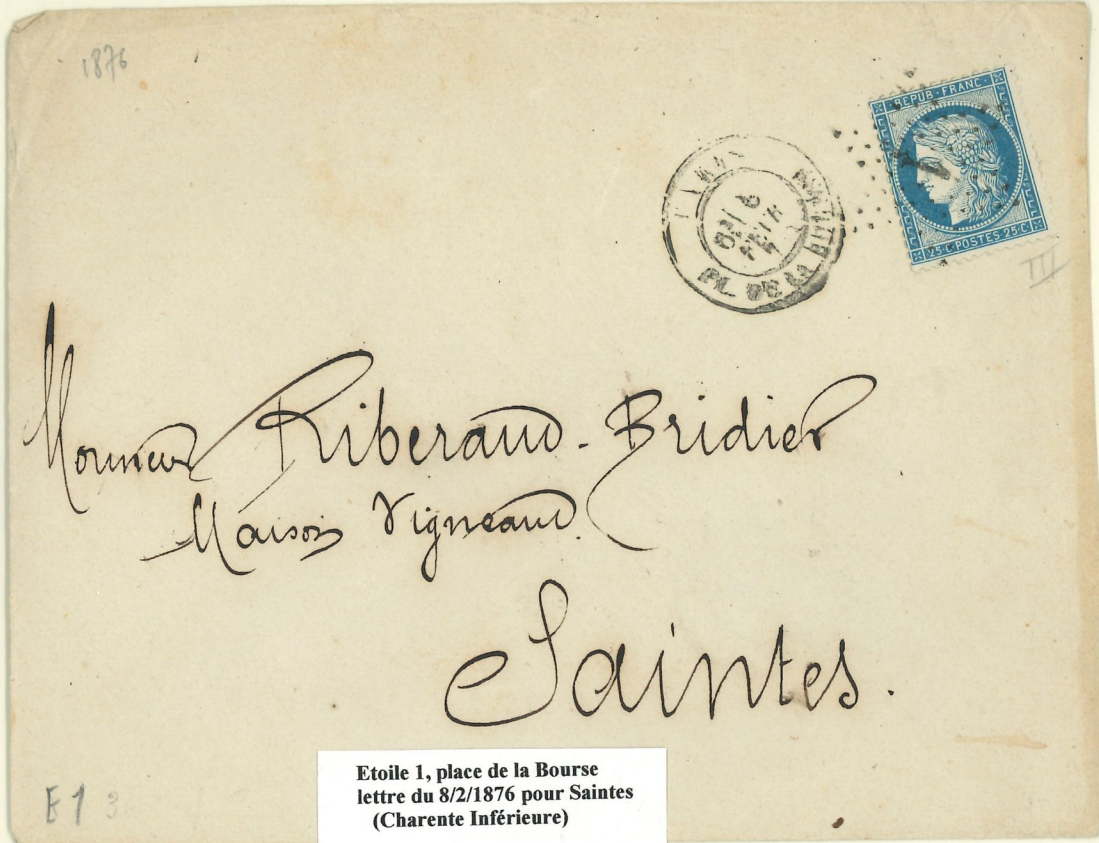 1876
REPUB·FRANC·
1
25·C·POSTES·25·C·
PARIS
FEVR
PL. DE LA BOURSE
III
Monsieur Riberaud-Bridier
Maison Vigneaud
Saintes.
E 1 3
Etoile 1, place de la Bourse
lettre du 8/2/1876 pour Saintes
(Charente Inférieure)